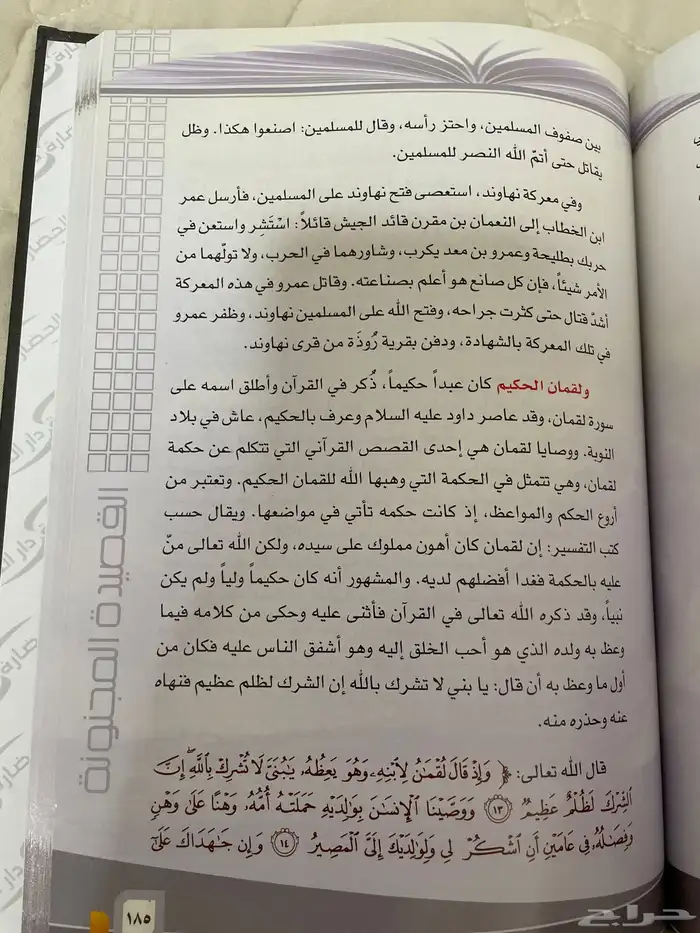 بين صفوف المسلمين، واحتز رأسه، وقال للمسلمين: اصنعوا هكذا. وظل
يقاتل حتى أتمّ الله النصر للمسلمين.
وفي معركة نهاوند، استعصى فتح نهاوند على المسلمين، فأرسل عمر
ابن الخطاب إلى النعمان بن مقرن قائد الجيش قائلاً: اسْتَشِر واستعن في
حربك بطليحة وعمرو بن معد يكرب، وشاورهما في الحرب، ولا تولّهما من
الأمر شيئاً، فإن كل صانع هو أعلم بصناعته. وقاتل عمرو في هذه المعركة
أشدّ قتال حتى كثرت جراحه، وفتح الله على المسلمين نهاوند، وظفر عمرو
في تلك المعركة بالشهادة، ودفن بقرية رُوذَة من قرى نهاوند.
ولقمان الحكيم كان عبداً حكيماً، ذُكر في القرآن وأطلق اسمه على
سورة لقمان، وقد عاصر داود عليه السلام وعرف بالحكيم، عاش في بلاد
النوبة. ووصايا لقمان هي إحدى القصص القرآني التي تتكلم عن حكمة
لقمان، وهي تتمثل في الحكمة التي وهبها الله للقمان الحكيم. وتعتبر من
أروع الحكم والمواعظ، إذ كانت حكمه تأتي في مواضعها. ويقال حسب
كتب التفسير: إن لقمان كان أهون مملوك على سيده، ولكن الله تعالى منّ
عليه بالحكمة فغدا أفضلهم لديه. والمشهور أنه كان حكيماً ولياً ولم يكن
نبياً، وقد ذكره الله تعالى في القرآن فأثنى عليه وحكى من كلامه فيما
وعظ به ولده الذي هو أحب الخلق إليه وهو أشفق الناس عليه فكان من
أول ما وعظ به أن قال: يا بني لا تشرك بالله إن الشرك لظلم عظيم فنهاه
عنه وحذره منه.
قال الله تعالى: ﴿ وَإِذْ قَالَ لُقْمَٰنُ لِٱبْنِهِۦ وَهُوَ يَعِظُهُۥ يَٰبُنَىَّ لَا تُشْرِكْ بِٱللَّهِ ۖ إِنَّ
ٱلشِّرْكَ لَظُلْمٌ عَظِيمٌ ١٣ وَوَصَّيْنَا ٱلْإِنسَٰنَ بِوَٰلِدَيْهِ حَمَلَتْهُ أُمُّهُۥ وَهْنًا عَلَىٰ وَهْنٍ
وَفِصَٰلُهُۥ فِى عَامَيْنِ أَنِ ٱشْكُرْ لِى وَلِوَٰلِدَيْكَ إِلَىَّ ٱلْمَصِيرُ ١٤ وَإِن جَٰهَدَاكَ عَلَىٰٓ
القصيدة المجنونة
١٨٥
حراج